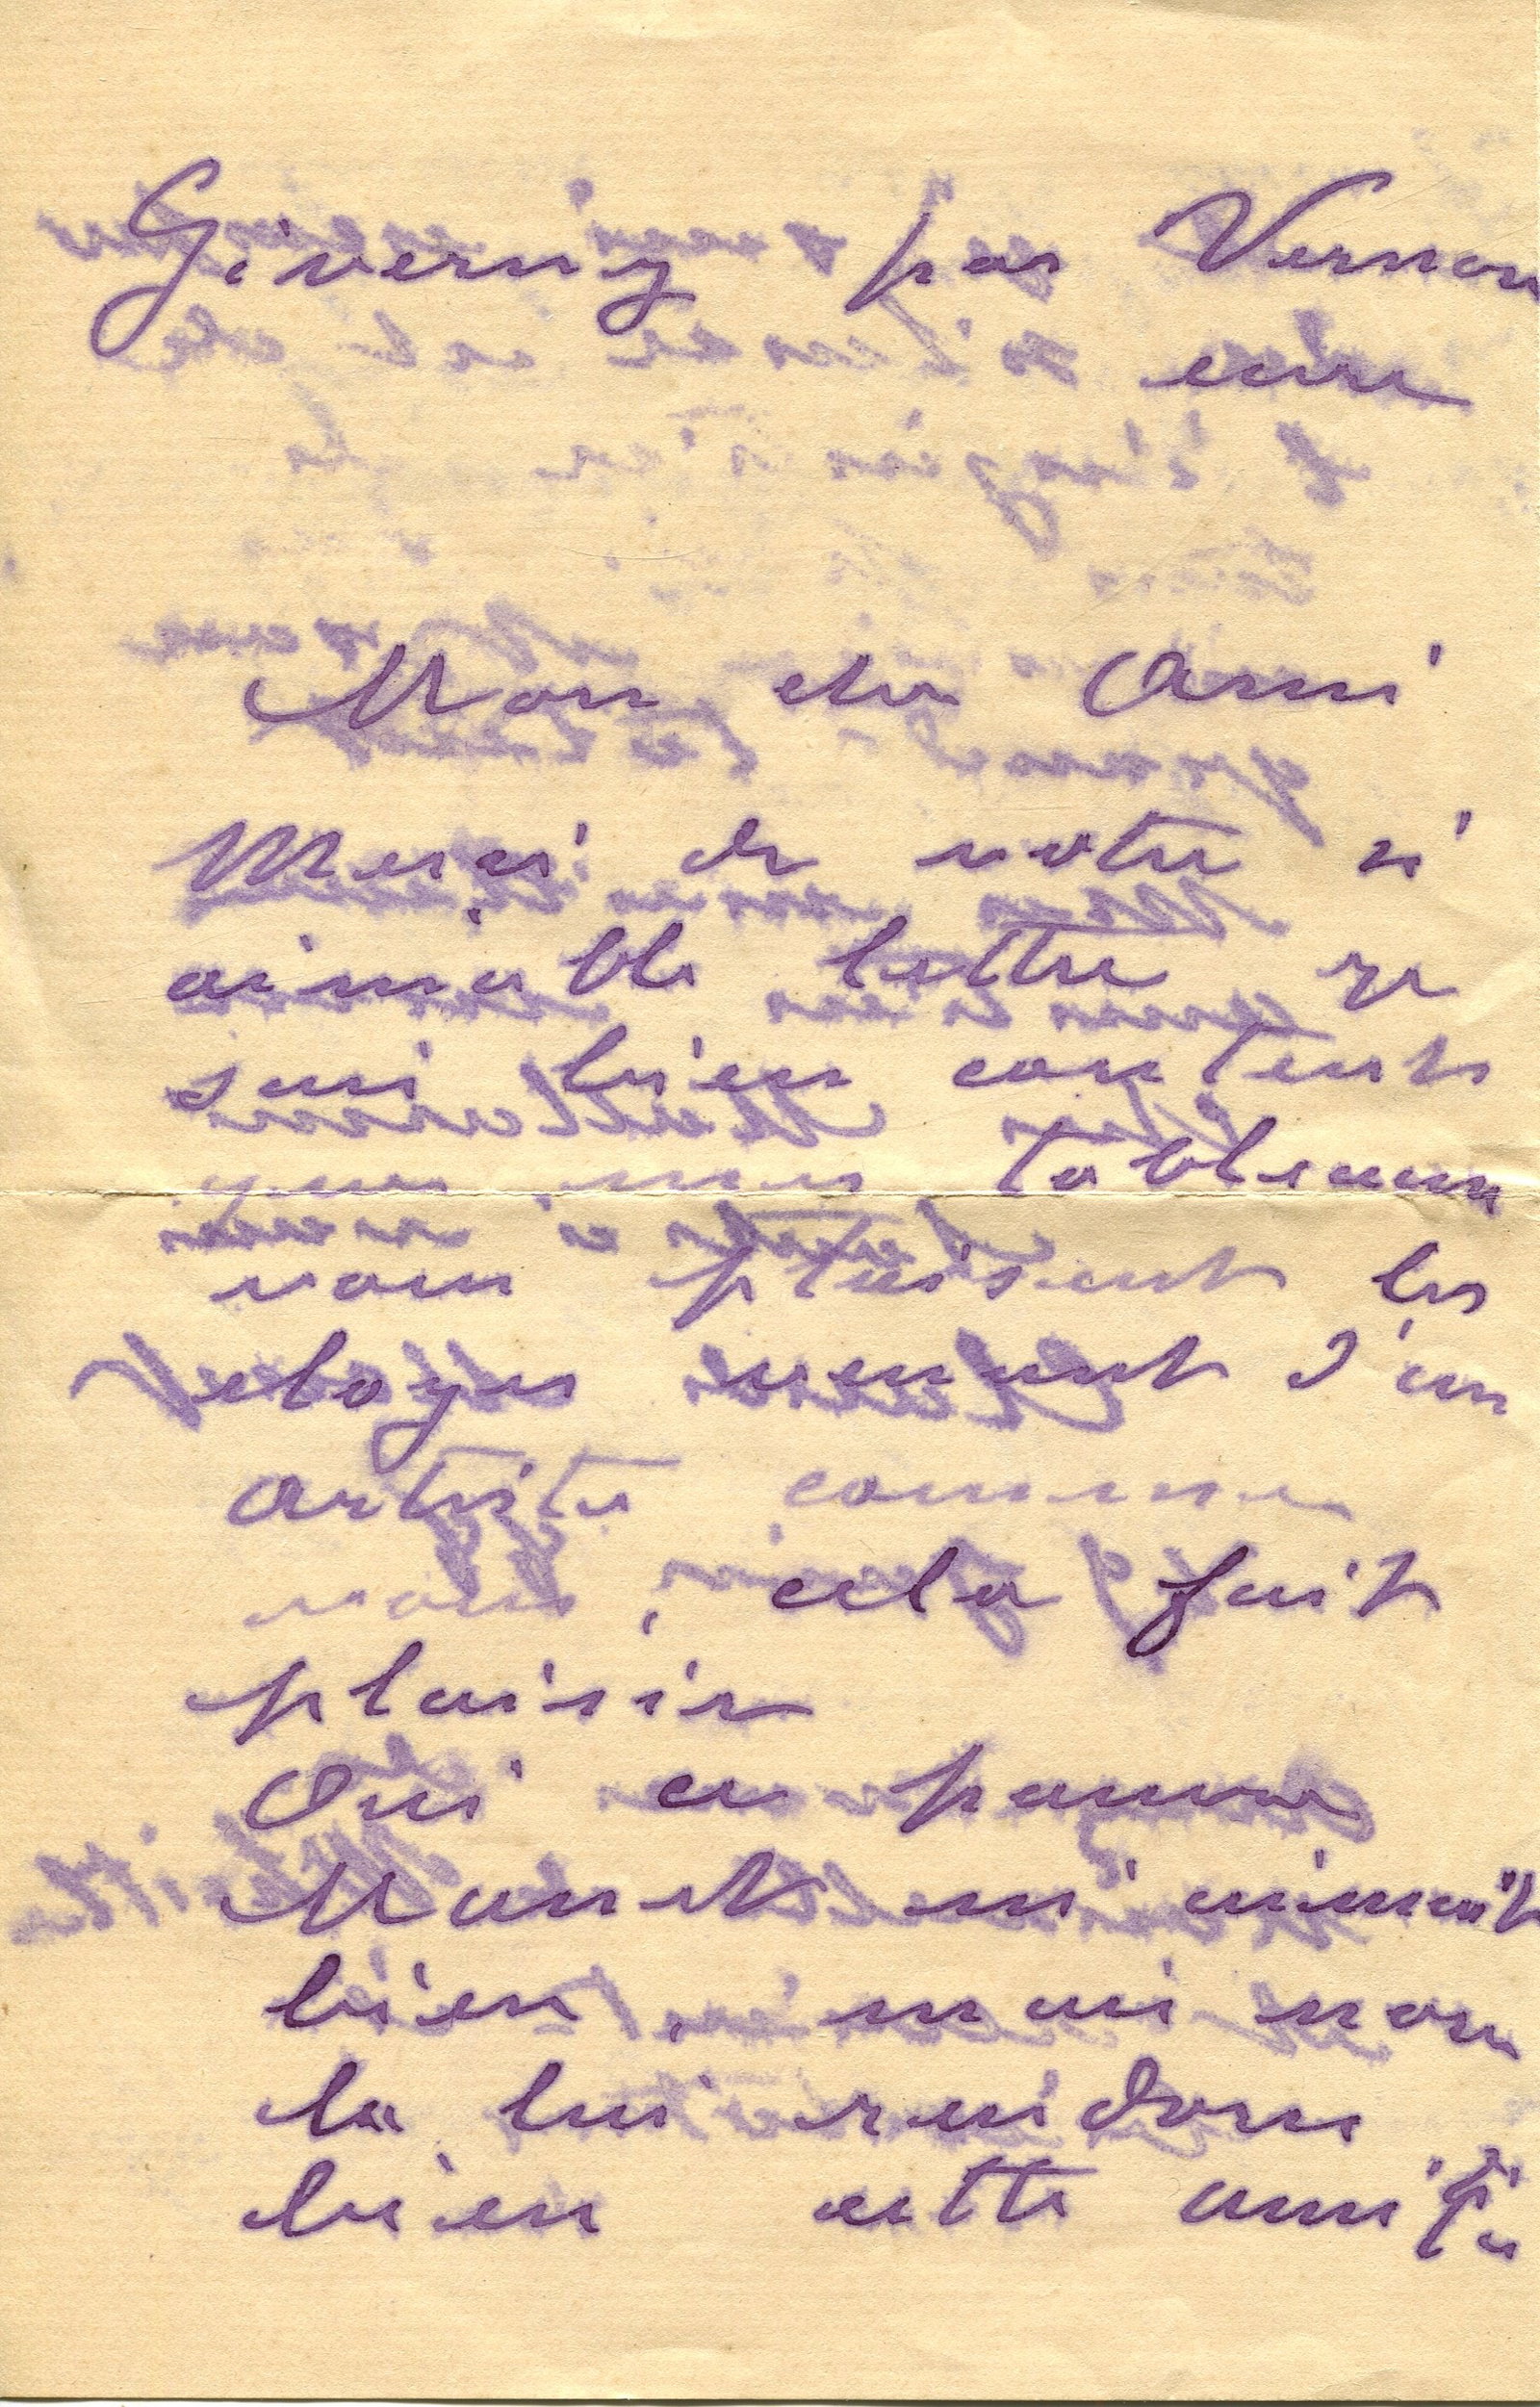 Giverny par Vernon
eure
Mon cher Ami
Merci de votre si
aimable lettre je
suis bien content
que mes tableaux
vous plaisent les
eloges venant d'un
artiste comme
vous, cela fait
plaisir
Oui ce pauvre
Manet m'aimait
bien, mais nous
la lui rendons
bien cette amitié